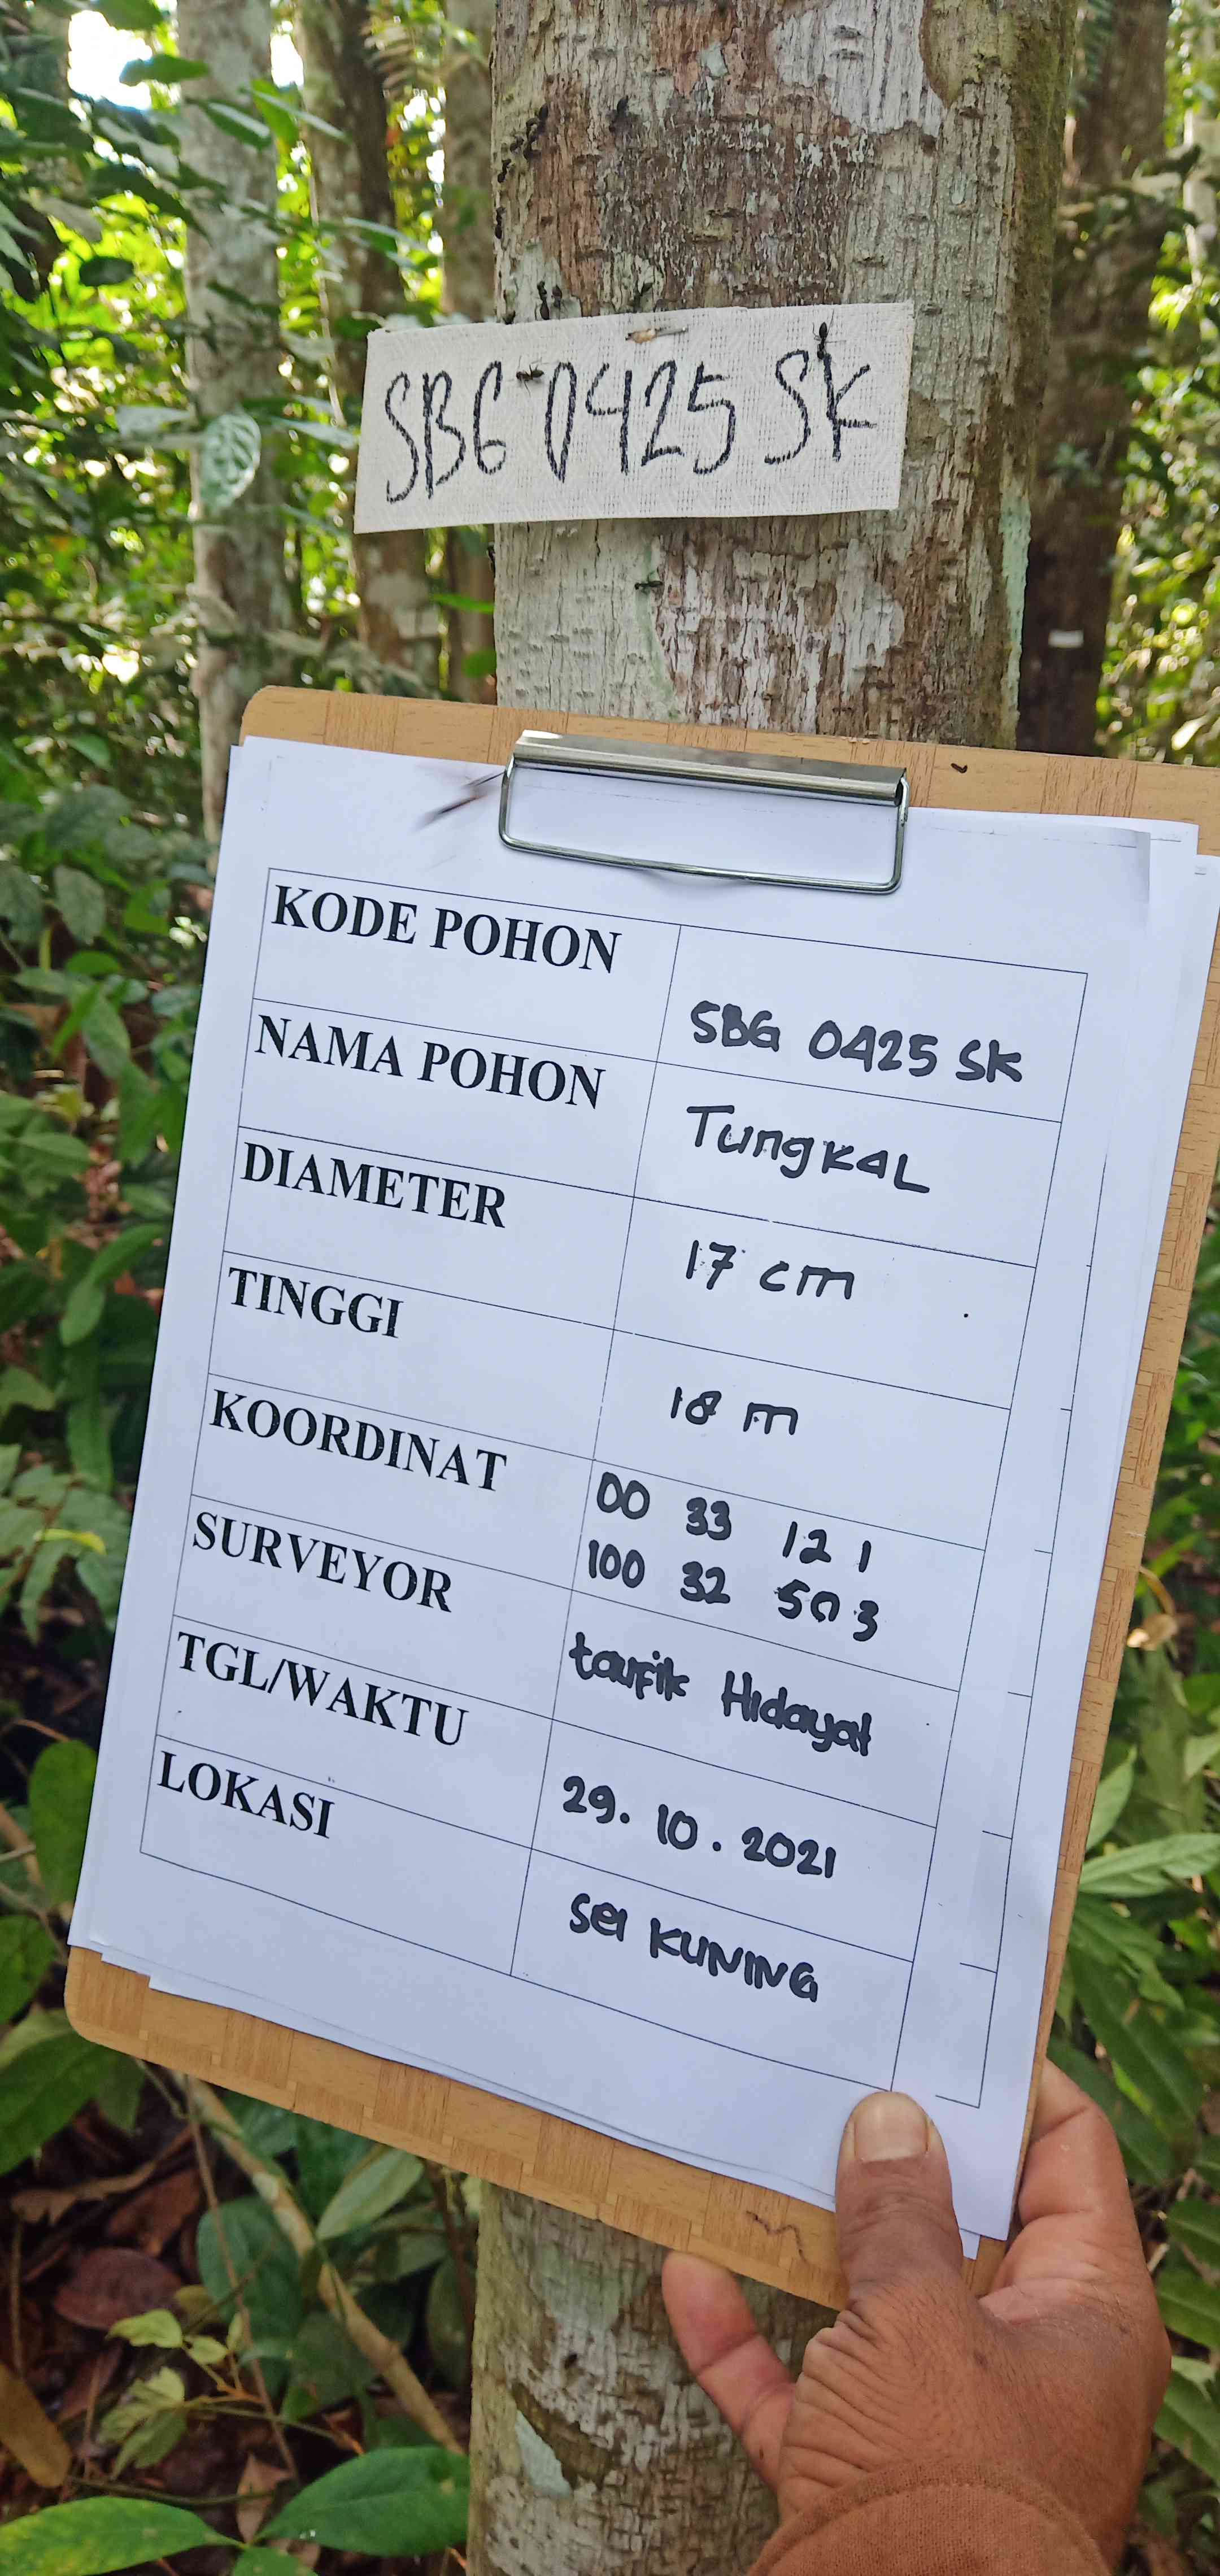 SBG 0425 SK
KODE POHON
SBG 0425 SK
NAMA POHON
TungKaL
DIAMETER
17 cm
TINGGI
18 m
KOORDINAT
00 33 12 1
100 32 50 3
SURVEYOR
taufik Hidayat
TGL/WAKTU
29. 10. 2021
LOKASI
sei KUNING